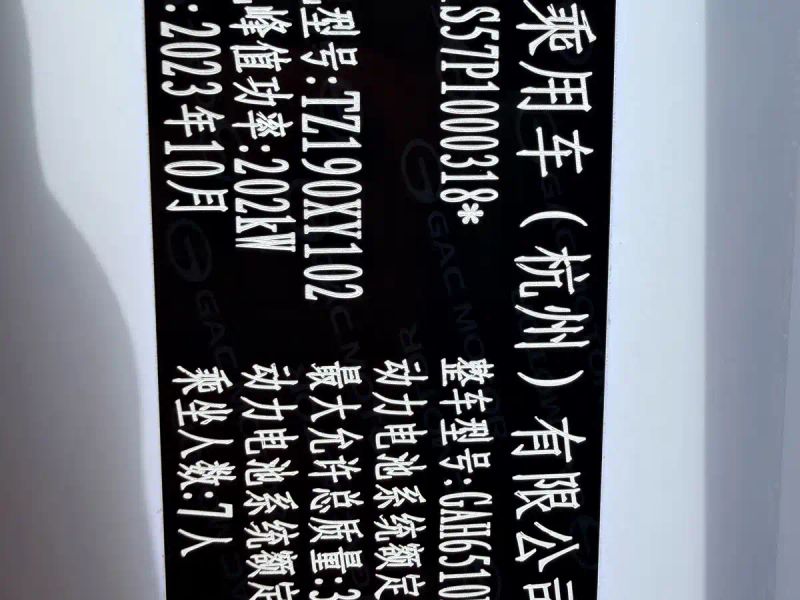 乘用车（杭州）有限公司
S57P1000318* 整车型号:GAH6510
动力电池系统额定
型号:TZ190XY102 最大允许总质量:3
峰值功率:202kW 动力电池系统额定
:2023年10月 乘坐人数:7人
GAC MOTOR